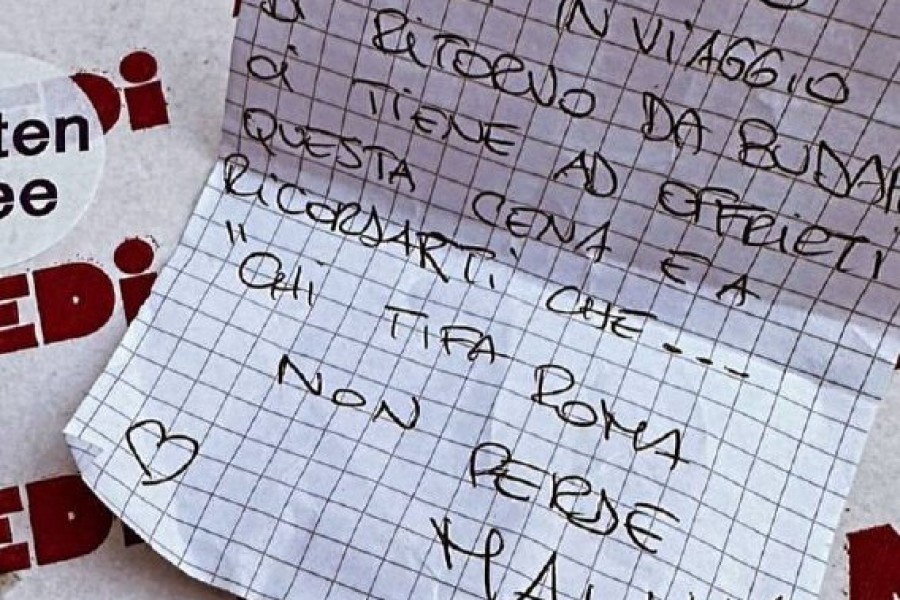 IN VIAGGIO
DI RITORNO DA BUDAP
CI TIENE AD OFFRIRTI
QUESTA CENA E A
RICORDARTI CHE...
"CHI TIFA ROMA
NON PERDE
MAI
ten
ee
EDi
EDi